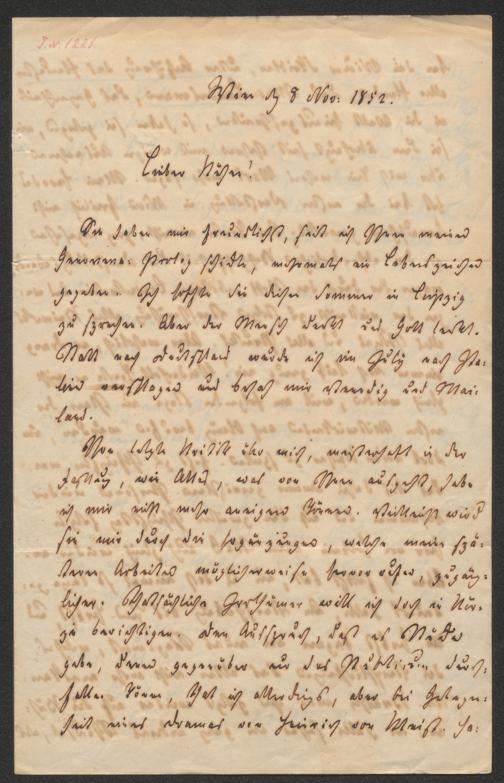 J.N. 1221
Wien d. 8 Nov: 1852.
Lieber Kühne!
Sie haben mir freundlichst, seit ich Ihnen meinen
Genoveva-Prolog schickte, mehrmals ein Lebenszeichen
gegeben. Ich hoffte Sie diesen Sommer in Leipzig
zu sprechen. Aber der Mensch denkt und Gott lenkt.
Statt nach Deutschland wurde ich im July nach Ita-
lien verschlagen und besah mir Venedig und Mai-
land.
Ihre letzte Kritik über mich, meisterhaft in der
Fassung, wie Alles, was von Ihnen ausgeht, habe
ich mir nicht mehr aneignen können. Vielleicht wird
sie mir durch die Ergänzungen, welche meine spä-
teren Arbeiten möglicherweise hervor rufen, zugäng-
licher. Thatsächliche Irrthümer will ich doch in Kür-
ze berichtigen. Den Ausspruch, daß es Stücke
gebe, denen gegenüber nur das Publicum durch-
fallen könne, that ich allerdings, aber bei Gelegen-
heit eines Dramas von Heinrich von Kleist. So-